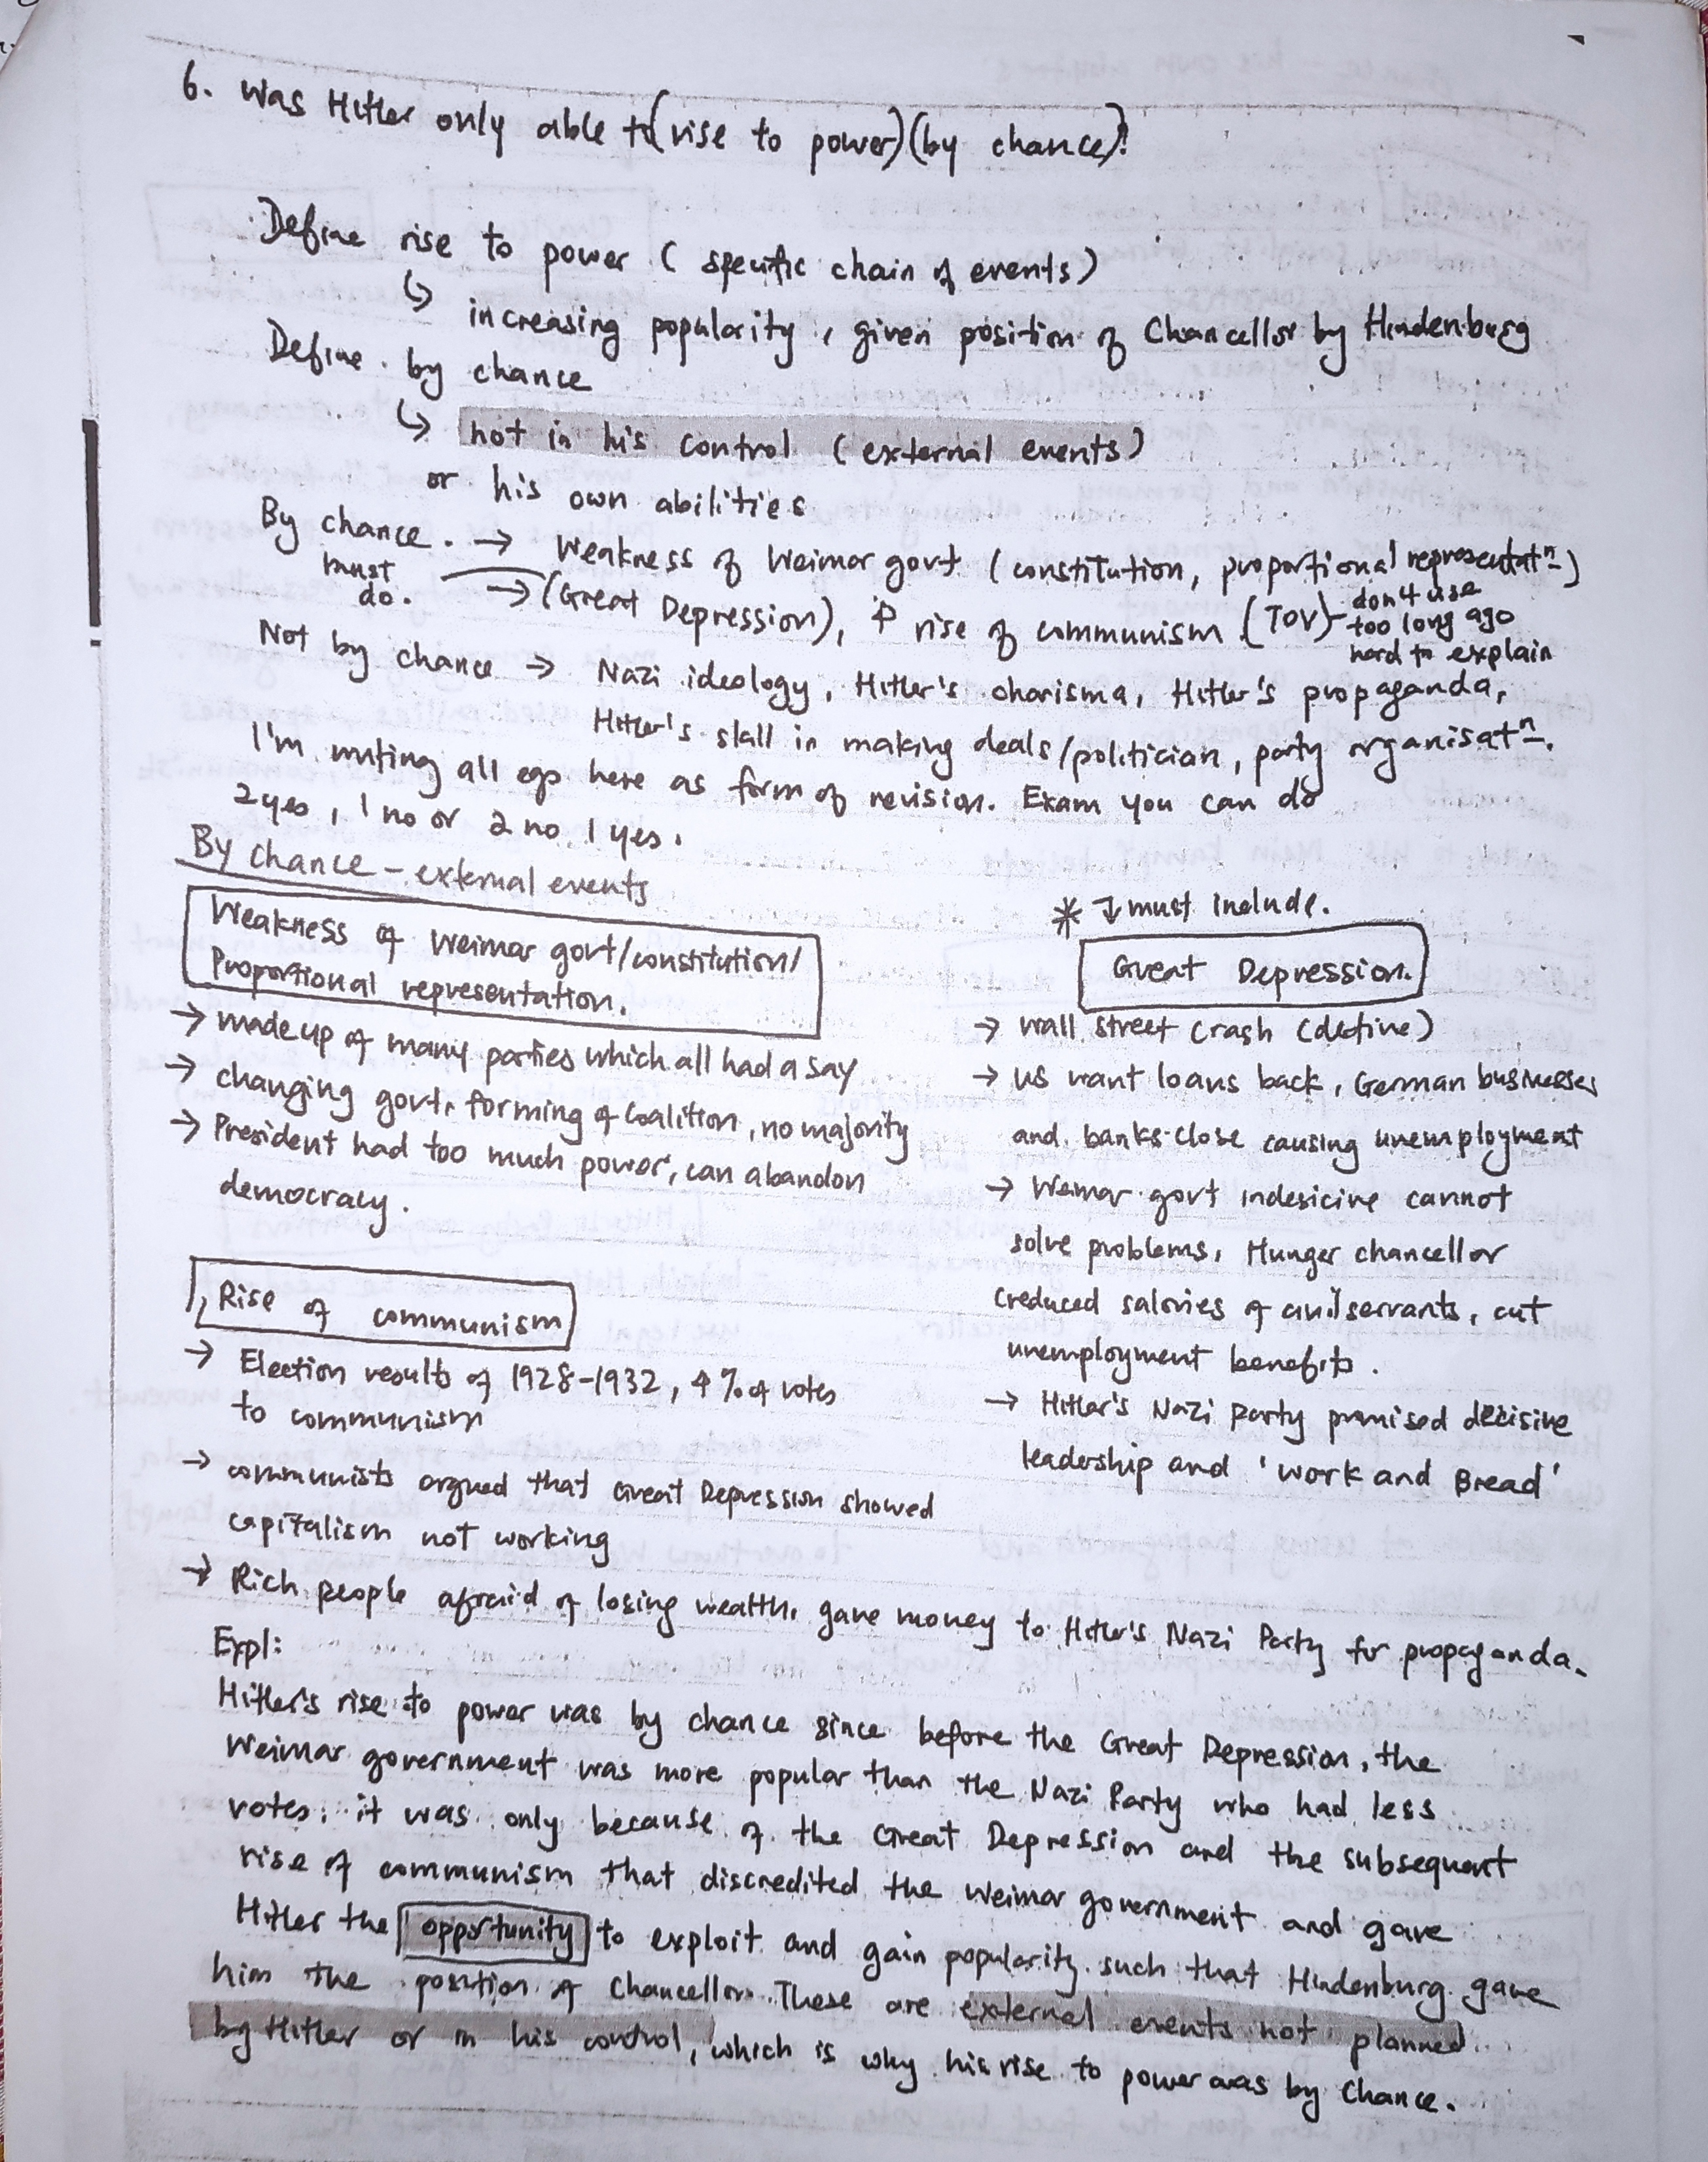 6. Was Hitler only able to (rise to power) (by chance)?
Define rise to power (specific chain of events)
↳ increasing popularity, given position of Chancellor by Hindenburg
Define by chance
↳ not in his control (external events)
or his own abilities
By chance. → Weakness of Weimar govt (constitution, proportional representatⁿ)
must do. → (Great Depression), ↑ rise of communism (TOV) - don't use
too long ago
hard to explain
Not by chance → Nazi ideology, Hitler's charisma, Hitler's propaganda,
Hitler's skill in making deals/politician, party organisatⁿ.
I'm writing all egs here as form of revision. Exam you can do
2 yes, 1 no or 2 no 1 yes.
By chance - external events
Weakness of Weimar govt/constitution/
Proportional representation.
→ made up of many parties which all had a say
→ changing govt, forming of coalition, no majority
→ President had too much power, can abandon
democracy.
* ↓ must include.
Great Depression.
→ Wall Street Crash (define)
→ US want loans back, German businesses
and banks close causing unemployment
→ Weimar govt indesicive cannot
solve problems, Hunger chancellor
(reduced salaries of civil servants, cut
unemployment benefits.
→ Hitler's Nazi Party promised decisive
leadership and 'Work and Bread'
Rise of communism
→ Election results of 1928-1932, ↑ % of votes
to communism
→ communists argued that Great Depression showed
capitalism not working
→ Rich people afraid of losing wealth, gave money to Hitler's Nazi Party for propaganda.
Expl:
Hitler's rise to power was by chance since before the Great Depression, the
Weimar government was more popular than the Nazi Party who had less
votes. it was only because of the Great Depression and the subsequent
rise of communism that discredited the Weimar government and gave
Hitler the opportunity to exploit and gain popularity such that Hindenburg gave
him the position of Chancellor. These are external events not planned
by Hitler or in his control, which is why his rise to power was by chance.